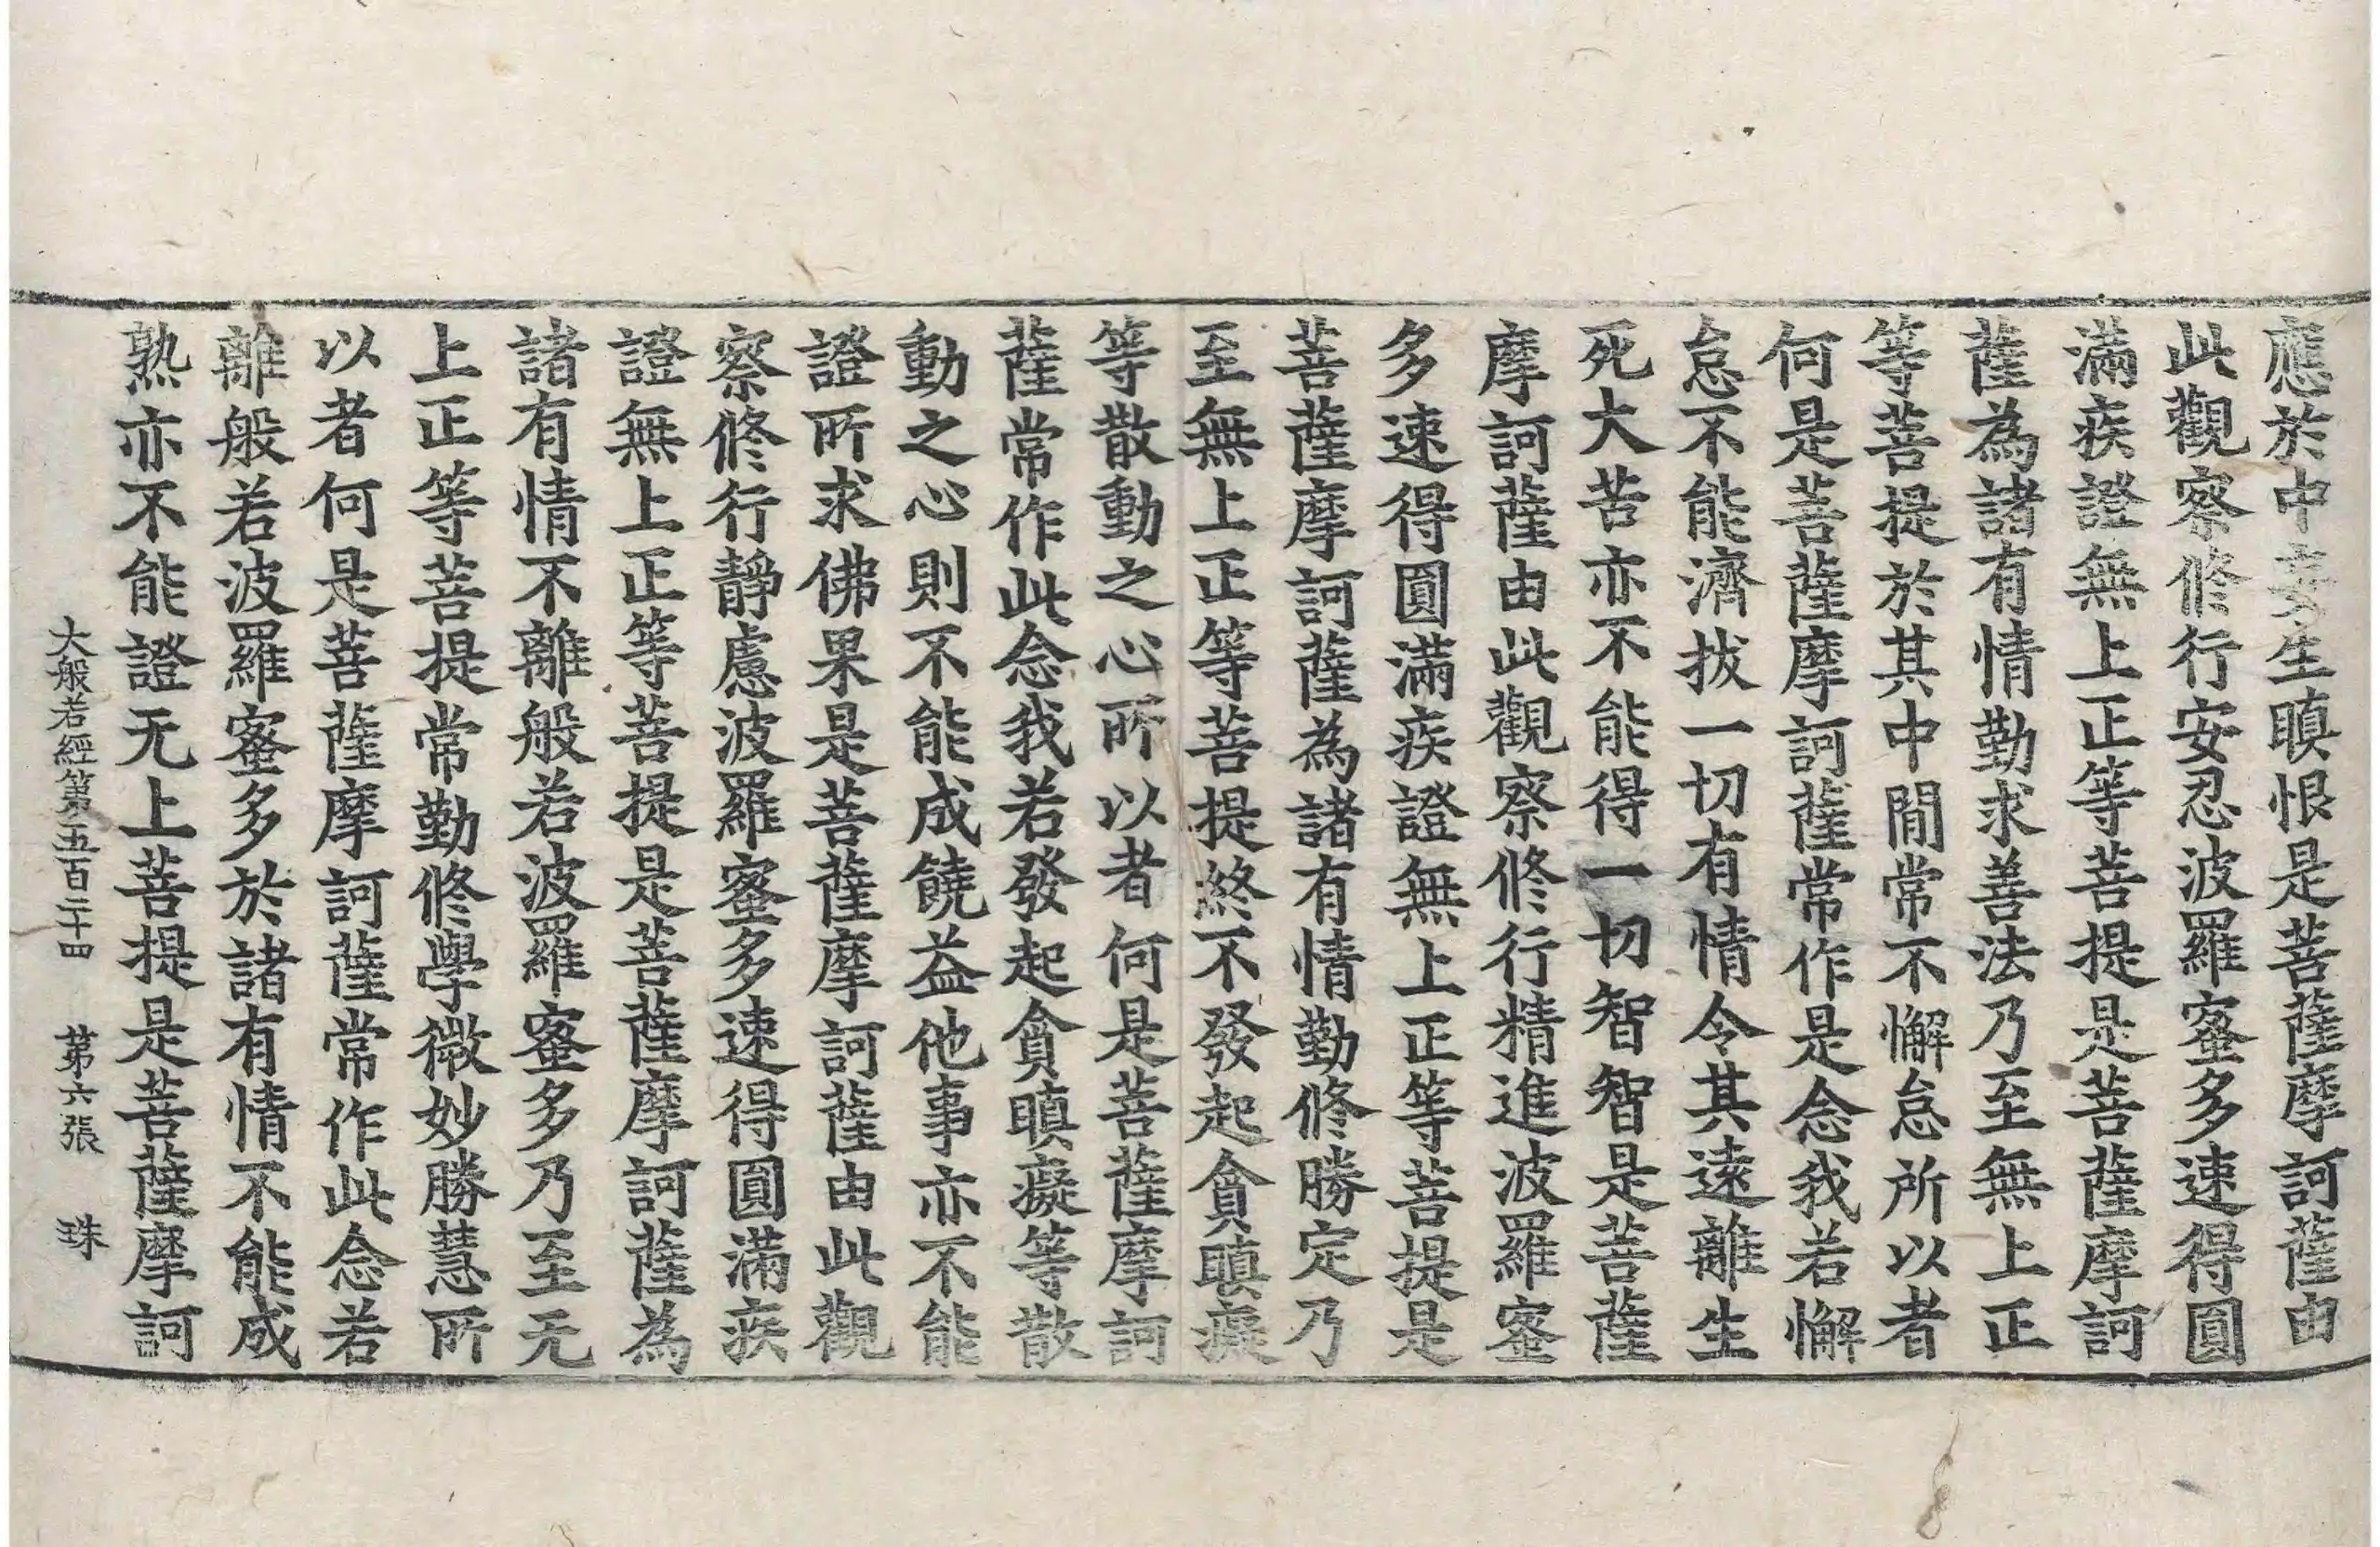 應於中妄生瞋恨是菩薩摩訶薩由
此觀察修行安忍波羅蜜多速得圓
滿疾證無上正等菩提是菩薩摩訶
薩為諸有情勤求善法乃至無上正
等菩提於其中間常不懈怠所以者
何是菩薩摩訶薩常作是念我若懈
怠不能濟拔一切有情令其遠離生
死大苦亦不能得一切智智是菩薩
摩訶薩由此觀察修行精進波羅蜜
多速得圓滿疾證無上正等菩提是
菩薩摩訶薩為諸有情勤修勝定乃
至無上正等菩提終不發起貪瞋癡
等散動之心所以者何是菩薩摩訶
薩常作此念我若發起貪瞋癡等散
動之心則不能成饒益他事亦不能
證所求佛果是菩薩摩訶薩由此觀
察修行靜慮波羅蜜多速得圓滿疾
證無上正等菩提是菩薩摩訶薩為
諸有情不離般若波羅蜜多乃至无
上正等菩提常勤修學微妙勝慧所
以者何是菩薩摩訶薩常作此念若
離般若波羅蜜多於諸有情不能成
熟亦不能證无上菩提是菩薩摩訶
大般若經第五百二十四 第六張 珠